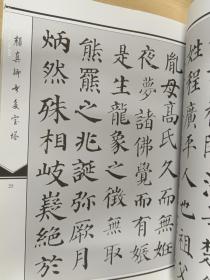 姓程廣平人也祖父
胤母高氏久而無妊
夜夢諸佛覺而有娠
是生龍象之徵無取
熊羆之兆誕彌厥月
炳然殊相岐嶷絕於
顏真卿多寶塔